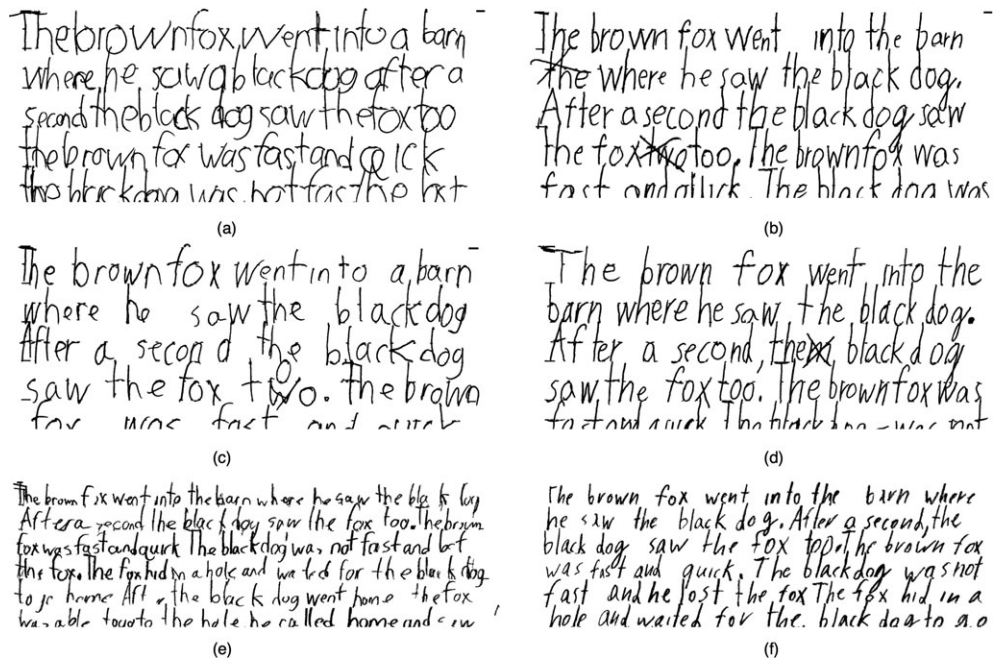 The brown fox went into a barn
where he saw a black dog after a
second the black dog saw the fox too
the brown fox was fast and qick
the black dog was not fast the
(a)
The brown fox went into the barn
the where he saw the black dog.
After a second the black dog saw
the fox too. The brown fox was
fast and quick. The black dog was
(b)
The brown fox went into a barn
where he saw the black dog
After a second the black dog
saw the fox two. The brown
fox was fast and quick
(c)
The brown fox went into the
barn where he saw the black dog.
After a second, the black dog
saw the fox too. The brown fox was
fast and quick. The black dog was not
(d)
The brown fox went into the barn where he saw the black dog
After a second the black dog saw the fox too. The brown
fox was fast and quick The black dog was not fast and lost
the fox. The fox hid in a hole and waited for the black dog
to go home Aft the black dog went home the fox
was able to go to the hole. he called home and saw
(e)
The brown fox went into the barn where
he saw the black dog. After a second, the
black dog saw the fox too. The brown fox
was fast and quick. The black dog was not
fast and he lost the fox The fox hid in a
hole and waited for the. black dog to go
(f)